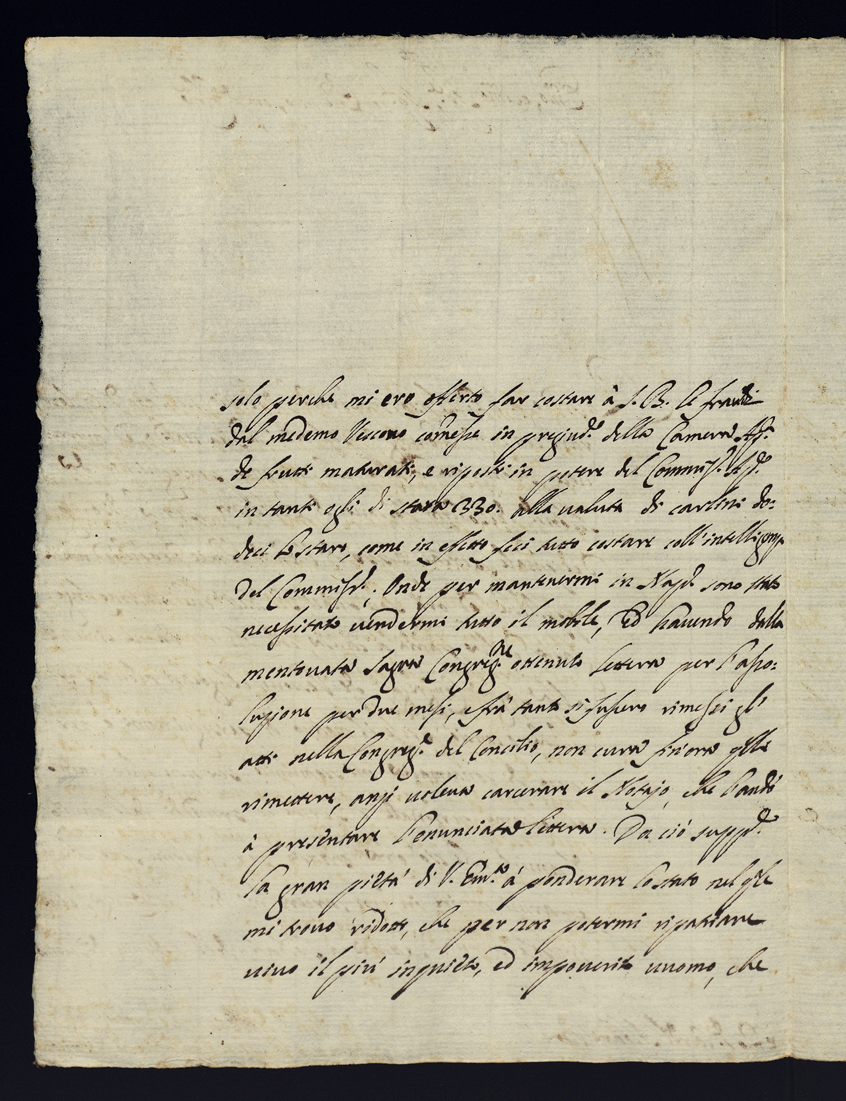 solo perche mi ero offerto far costare à S. B. le fraudi
dal medemo Vescovo com̃esse in pregiud.º della Camera Ap.
de frutti maturati, e riposti in potere del Commiss.º
in tanti ogli di stara 330. alla valuta di carlini do:
deci lo staro, come in effetto feci tutto costare coll'intelligenza
del Commiss.º; Onde per mantenermi in Nap. sono stato
necessitato vendermi tutto il mobile, Ed havendo dalla
mentovata Sagra Congreg.ne ottenuto lettera per l'asso:
luzione per due mesi, e frà tanto si fussero rimessi gl'
atti nella Congreg.e del Concilio, non cura fin'ora q̃lli
rimettere, anzi voleva carcerare il Notajo, che l'andò
à presentare l'enunciata lettera. Da ciò supp.º
la gran pietá di V. Em.za á ponderare lo stato nel q̃le
mi trovo ridotto, che per non potermi ripatriare
vivo il piú inquieto, ed impoverito uuomo, che